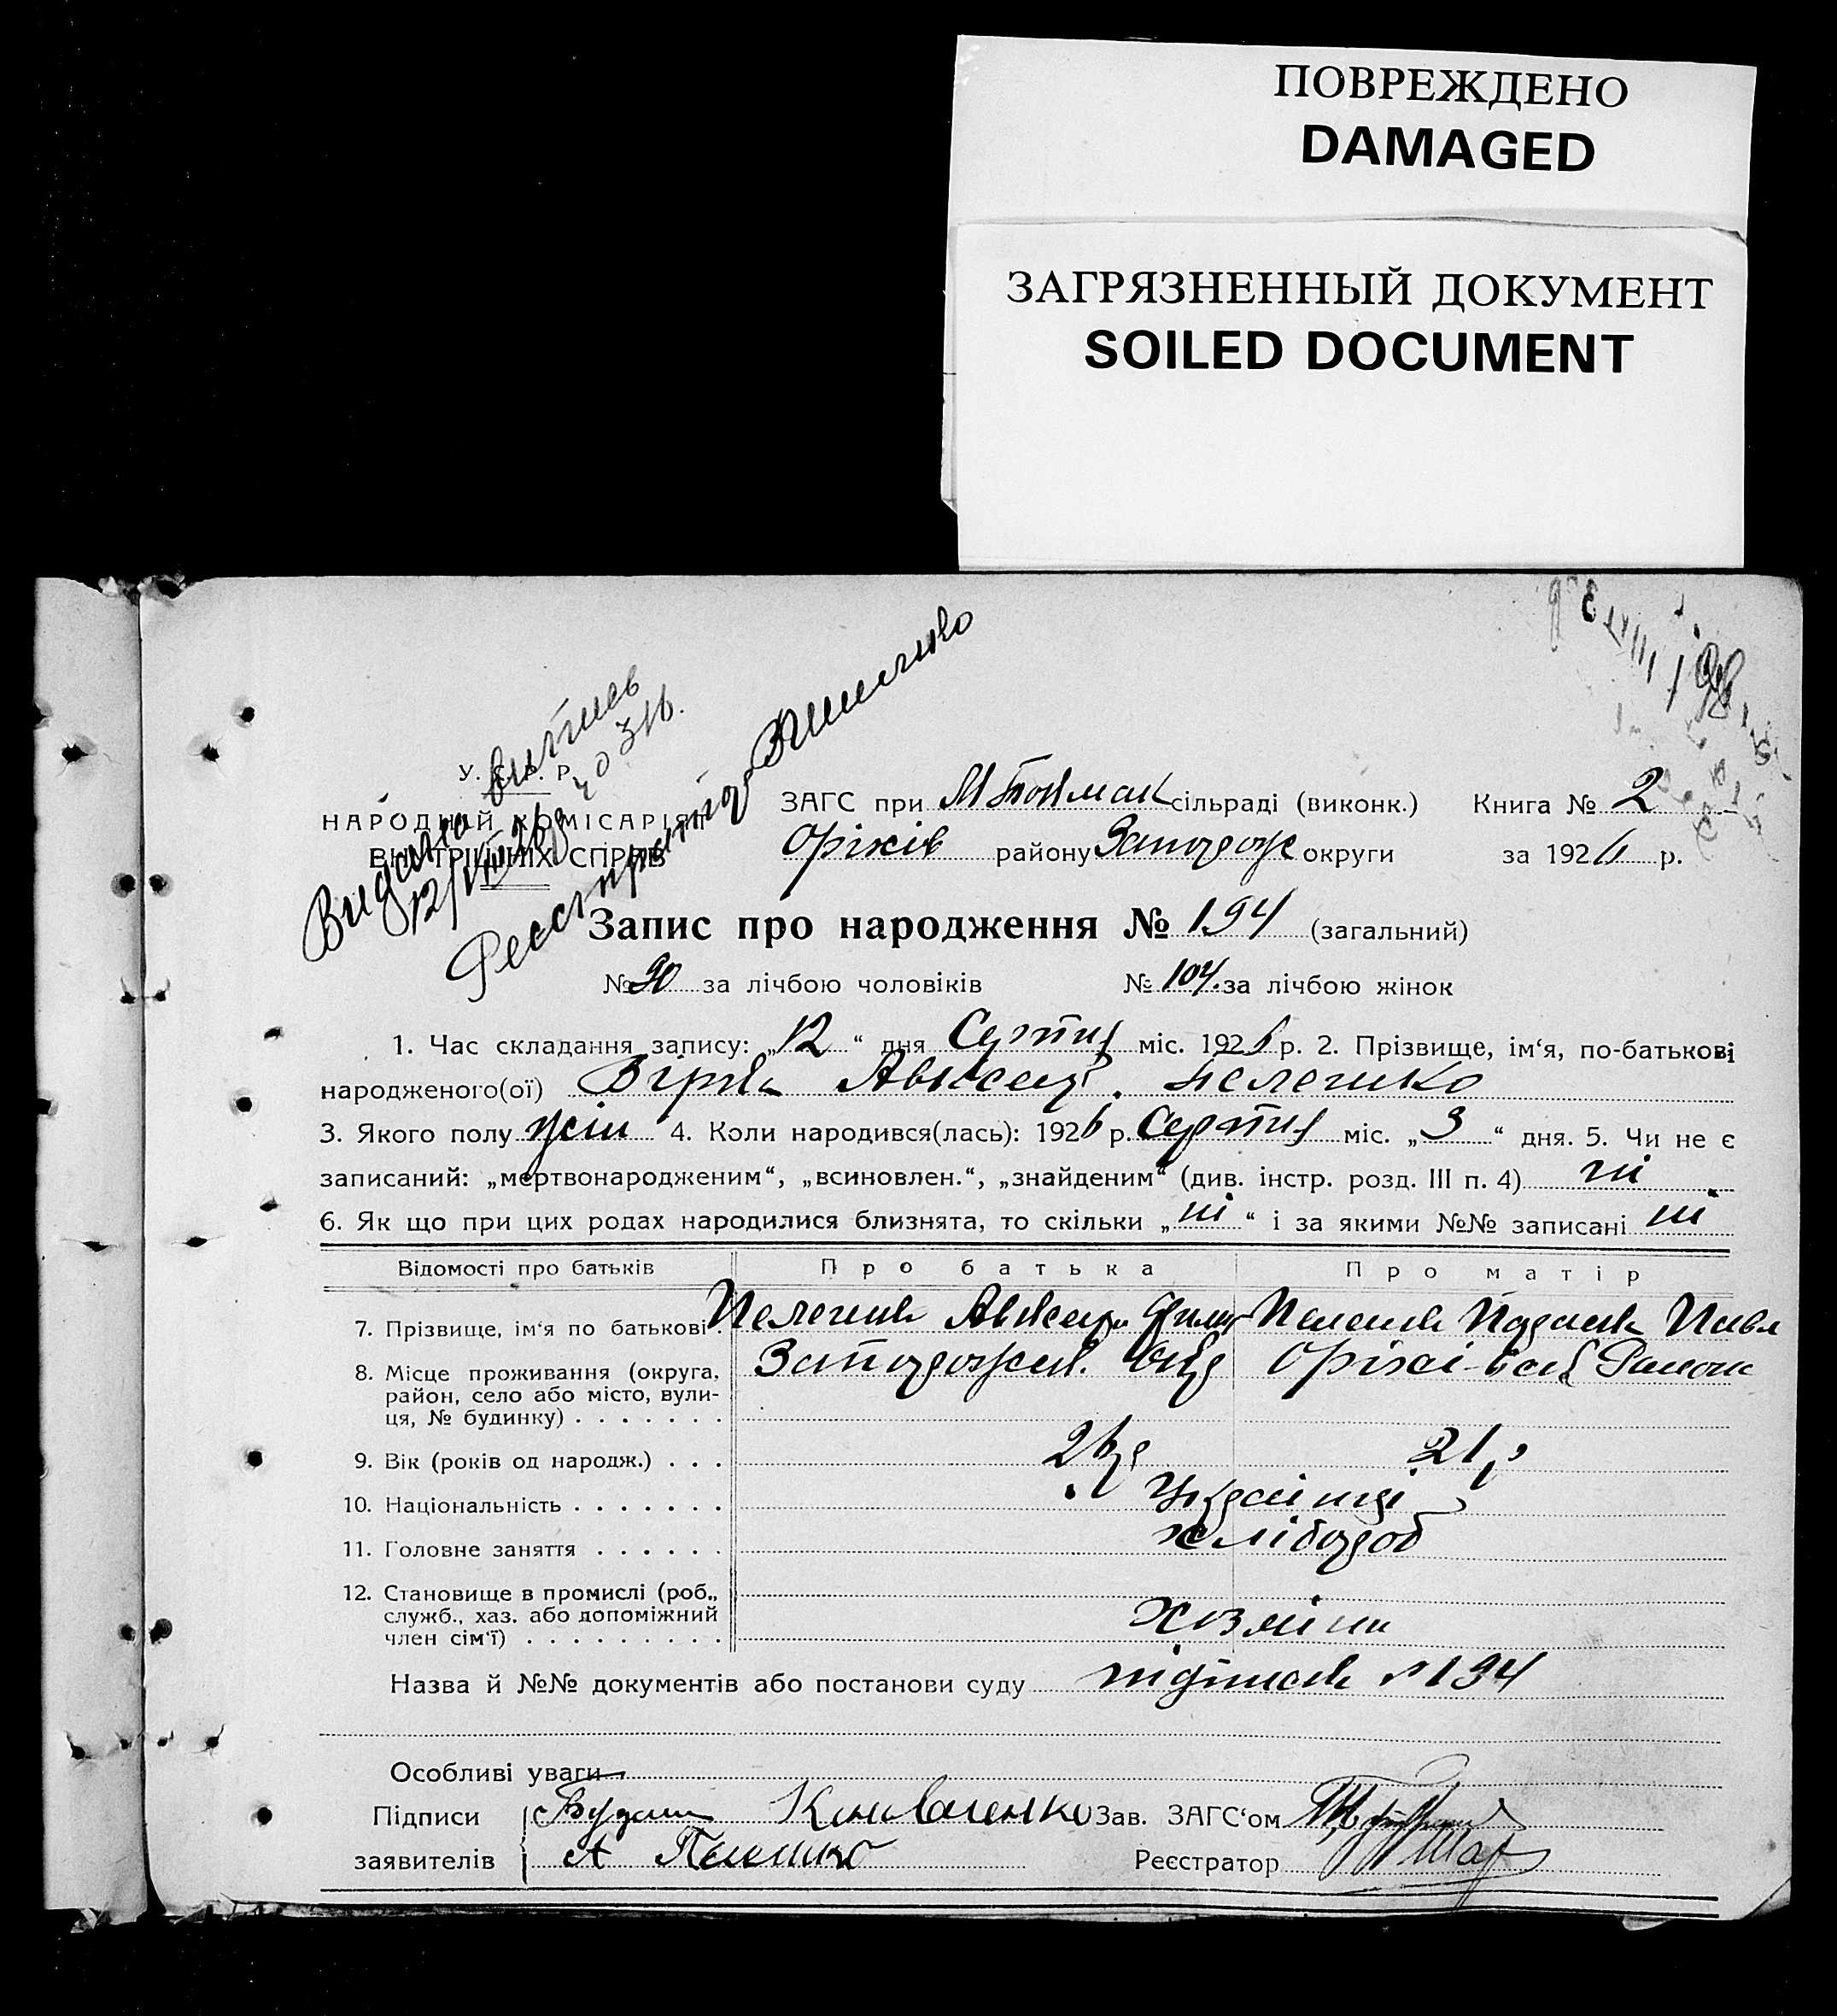 ПОВРЕЖДЕНО
DAMAGED
ЗАГРЯЗНЕННЫЙ ДОКУМЕНТ
SOILED DOCUMENT
У. С. Р. Р.
НАРОДНІЙ КОМІСАРІЯТ
ВНУТРІШНІХ СПРАВ
Видано витяг
ЗАГС при М Токмак сільраді (виконк.) Книга № 2
Оріхів району Запорож округи за 1926 р.
Запис про народження № 194 (загальний)
№ 90 за лічбою чоловіків № 104 за лічбою жінок
1. Час складання запису: „12“ дня Серпня міс. 1926 р. 2. Прізвище, ім‘я, по-батькові
народженого(ої) Віра Авксен.
3. Якого полу жін 4. Коли народився(лась): 1926 р. Серпня міс. „3“ дня. 5. Чи не є
записаний: „мертвонародженим“, „всиновлен.“, „знайденим“ (див. інстр. розд. III п. 4) ні
6. Як що при цих родах народилися близнята, то скільки „ні“ і за якими №№ записані ні
Відомості про батьків Про батька Про матір
7. Прізвище, ім‘я по батькові.
8. Місце проживання (округа, Запорожськ. Окр Оріхі-вськ Район
район, село або місто, вули-
ця, № будинку) . . . . . . .
9. Вік (років од народж.) . . . 26р 21р
10. Національність . . . . . . . Українці
11. Головне заняття . . . . . . хлібороб
12. Становище в промислі (роб.,
служб., хаз. або допоміжний хозяїни
член сім‘ї) . . . . . . . . .
Назва й №№ документів або постанови суду підписка №194
Особливі уваги
Підписи Коноваленко Зав. ЗАГС‘ом
заявителів А Реєстратор